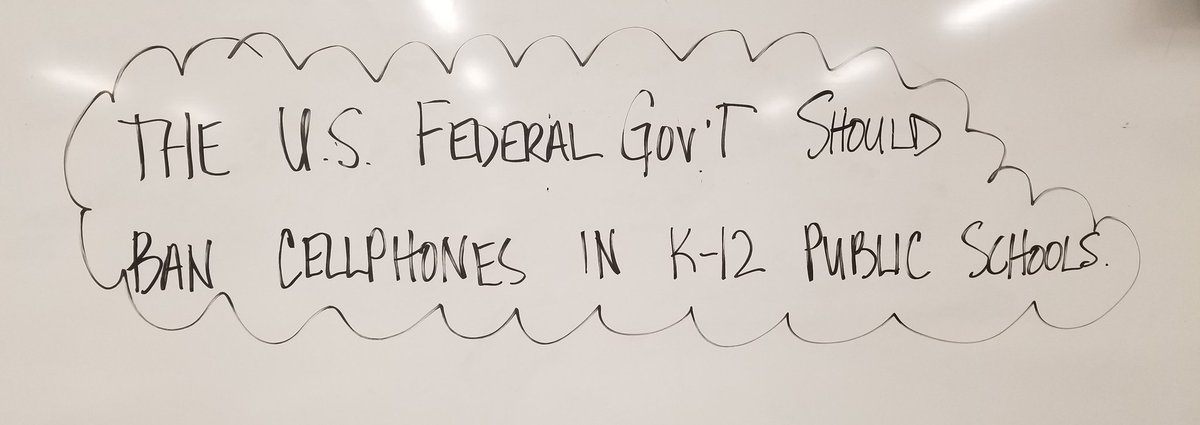 THE U.S. FEDERAL GOV'T SHOULD
BAN CELLPHONES IN K-12 PUBLIC SCHOOLS.